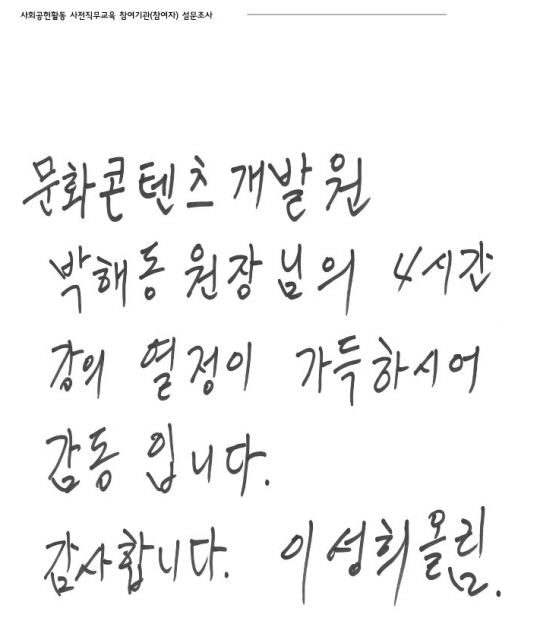 사회공헌활동 사전직무교육 참여기관(참여자) 설문조사
문화콘텐츠 개발원
박해동 원장님의 4시간
강의 열정이 가득하시어
감동 입니다.
감사합니다. 이성희올림.